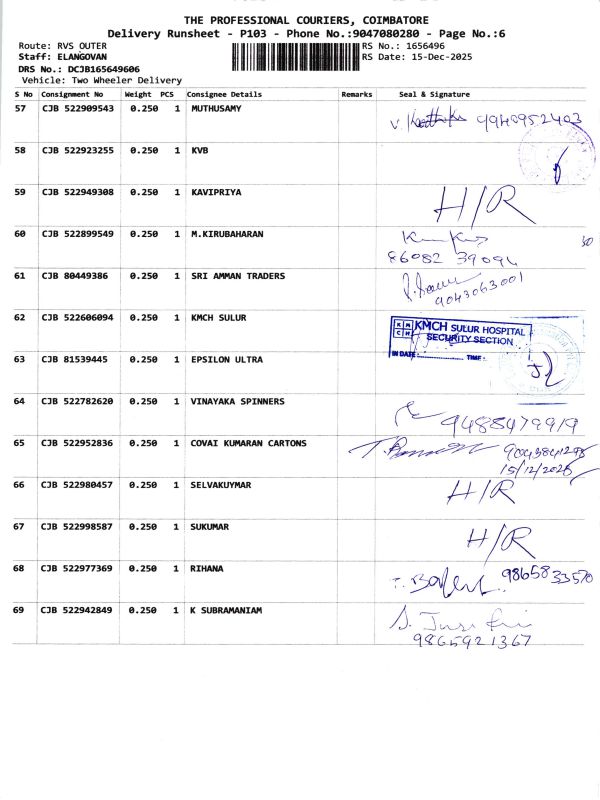 THE PROFESSIONAL COURIERS, COIMBATORE
Delivery Runsheet - P103 - Phone No.:9047080280 - Page No.:6
Route: RVS OUTER
RS No.: 1656496
Staff: ELANGOVAN
RS Date: 15-Dec-2025
DRS No.: DCJB165649606
Vehicle: Two Wheeler Delivery
S No Consignment No Weight PCS Consignee Details Remarks Seal & Signature
57 CJB 522909543 0.250 1 MUTHUSAMY
9940952403
58 CJB 522923255 0.250 1 KVB
59 CJB 522949308 0.250 1 KAVIPRIYA H/R
60 CJB 522899549 0.250 1 M.KIRUBAHARAN
86082 39094
61 CJB 80449386 0.250 1 SRI AMMAN TRADERS
9043063001
62 CJB 522606094 0.250 1 KMCH SULUR
KMCH SULUR HOSPITAL
SECURITY SECTION
IN DATE: TIME:
63 CJB 81539445 0.250 1 EPSILON ULTRA
64 CJB 522782620 0.250 1 VINAYAKA SPINNERS
9488479919
65 CJB 522952836 0.250 1 COVAI KUMARAN CARTONS
15/12/2025
66 CJB 522980457 0.250 1 SELVAKUYMAR H/R
67 CJB 522998587 0.250 1 SUKUMAR H/R
68 CJB 522977369 0.250 1 RIHANA
9865833570
69 CJB 522942849 0.250 1 K SUBRAMANIAM
9865921367